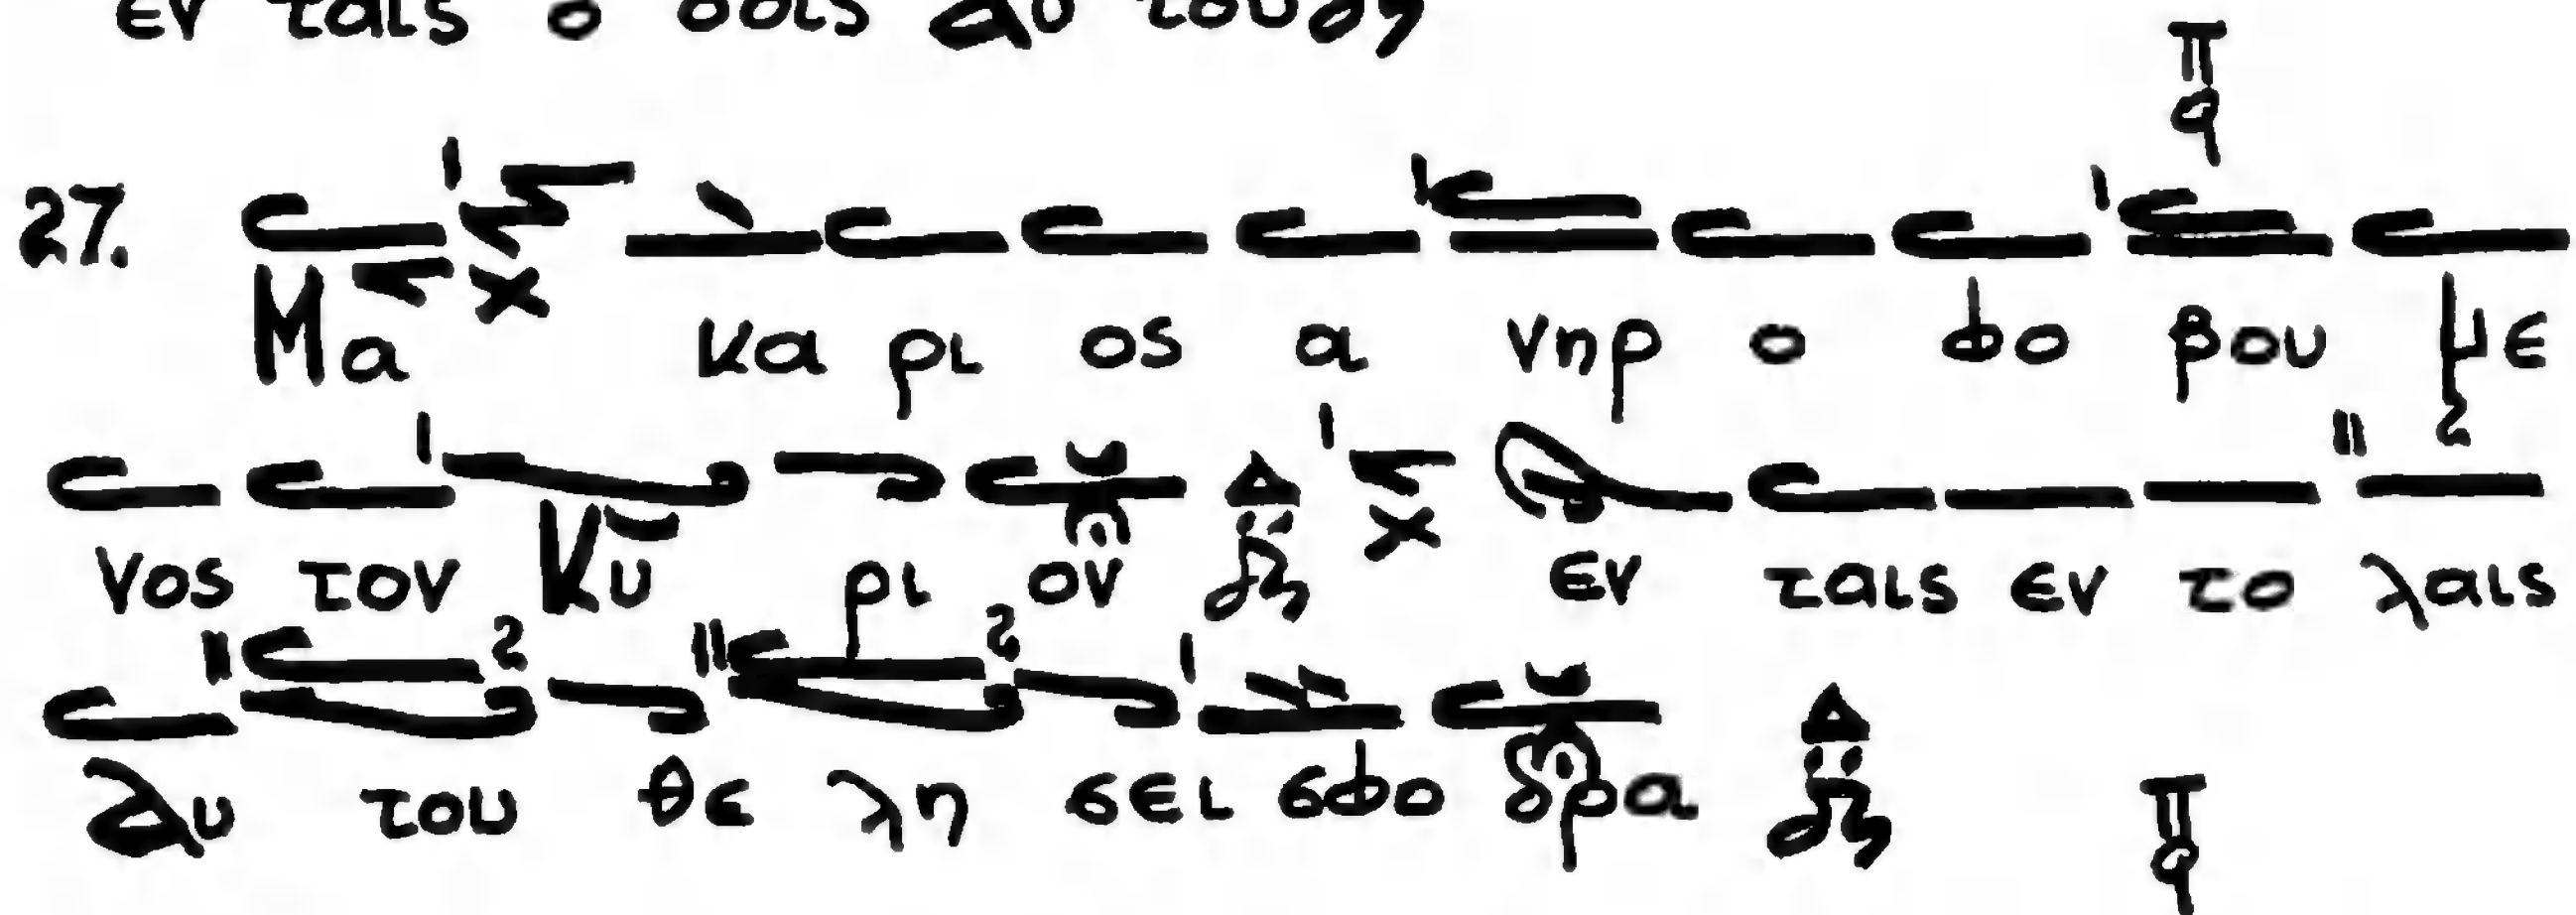 εν ταις ο δοις Αυ του
27. Μα κα ρι ος α νηρ ο φο βου με
νος τον Κυ ρι ον εν ταις εν το λαις
Αυ του θε λη σει σφο δρα